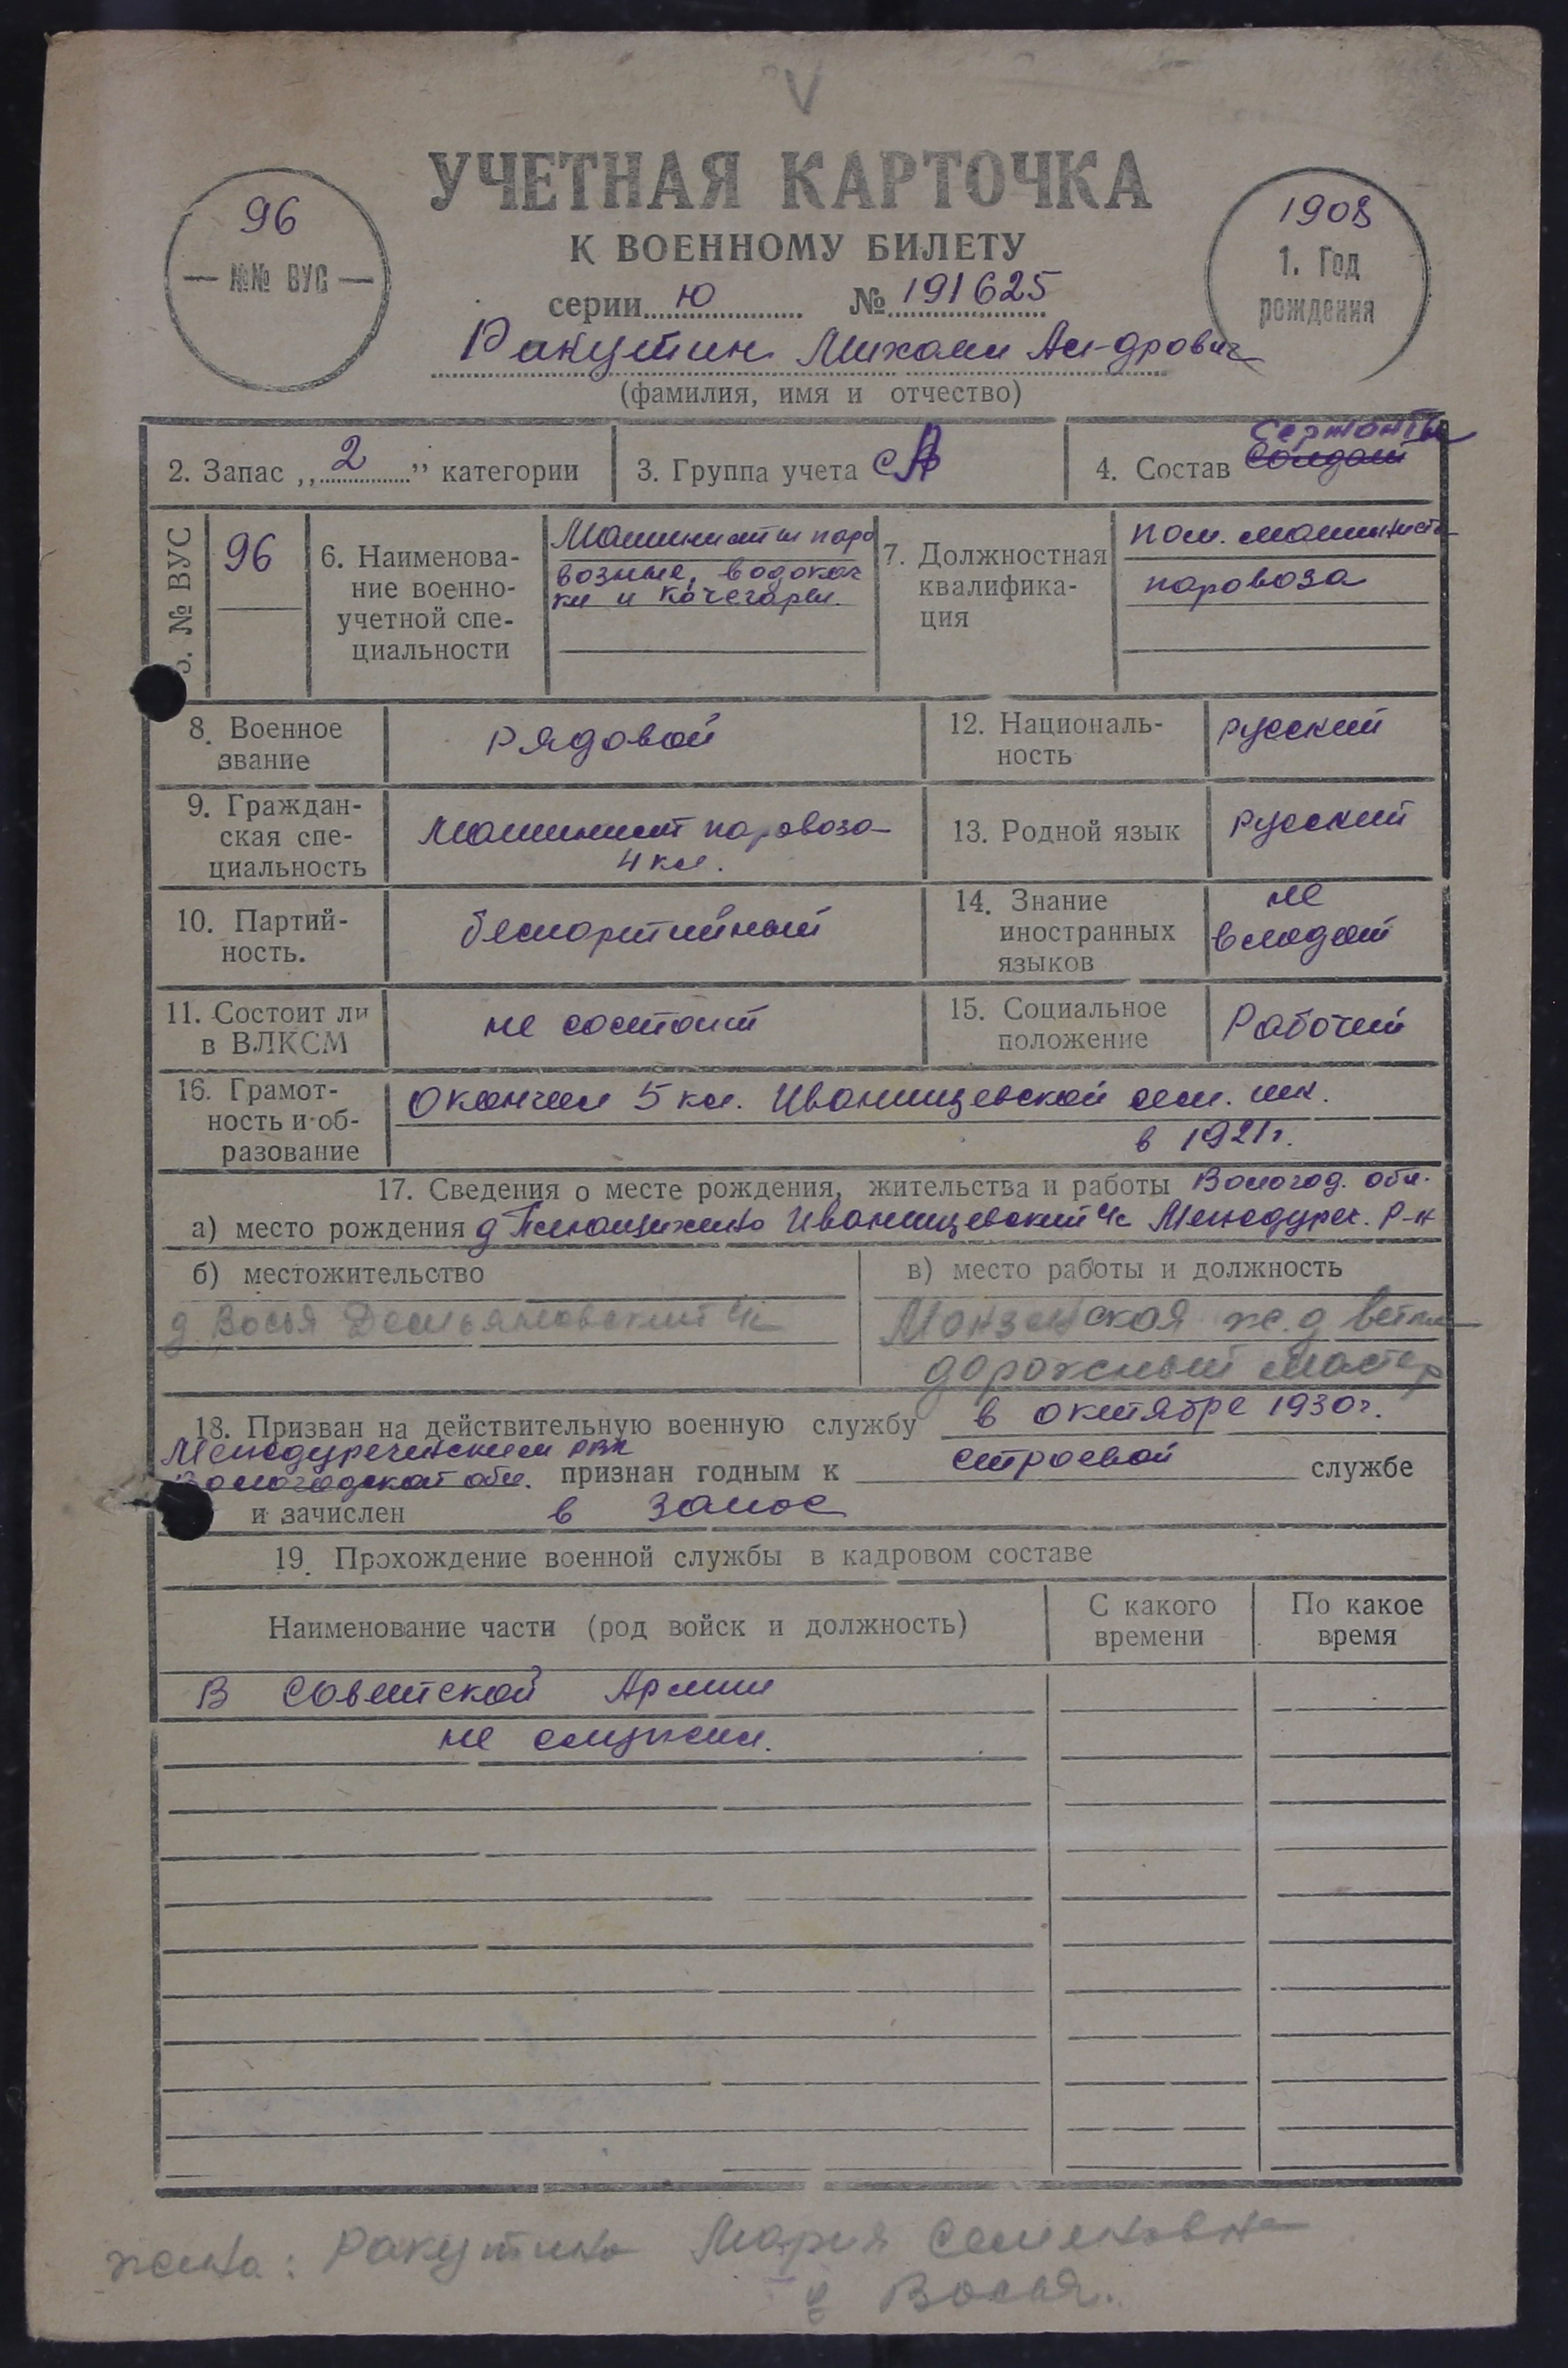 V
УЧЕТНАЯ КАРТОЧКА
К ВОЕННОМУ БИЛЕТУ
96
— №№ ВУС —
1908
1. Год
рождения
серии Ю № 191625
Ракутин Михаил Ал-дрович
(фамилия, имя и отчество)
2. Запас „2" категории
3. Группа учета СА
4. Состав Сержанты
солдат
5. № ВУС
96
6. Наименова-
ние военно-
учетной спе-
циальности
Машинисты паро
возные, водокач
ки и кочегары.
7. Должностная
квалифика-
ция
пом. машиниста
паровоза
8. Военное
звание
рядовой
12. Националь-
ность
русский
9. Граждан-
ская спе-
циальность
Машинист паровоза
4 кл.
13. Родной язык
русский
10. Партий-
ность.
беспартийный
14. Знание
иностранных
языков
не
владеет
11. Состоит ли
в ВЛКСМ
не состоит
15. Социальное
положение
Рабочий
16. Грамот-
ность и об-
разование
Окончил 5 кл. Иванищевской сем. шк.
в 1921г.
17. Сведения о месте рождения, жительства и работы Вологод. обл.
а) место рождения д Иванищевский с/с Междуреч. р-н
б) местожительство
д. Восья Демьяновский с/с
в) место работы и должность
Монзенская ж.д ветка
дорожный мастер
18. Призван на действительную военную службу в октябре 1930г.
Междуреченским РВК
Вологодской обл. признан годным к строевой службе
и зачислен в запас
19. Прохождение военной службы в кадровом составе
Наименование части (род войск и должность)
С какого
времени
По какое
время
В Советской Армии
не служил.
жена: Ракутина Мария Семеновна
д Восья.